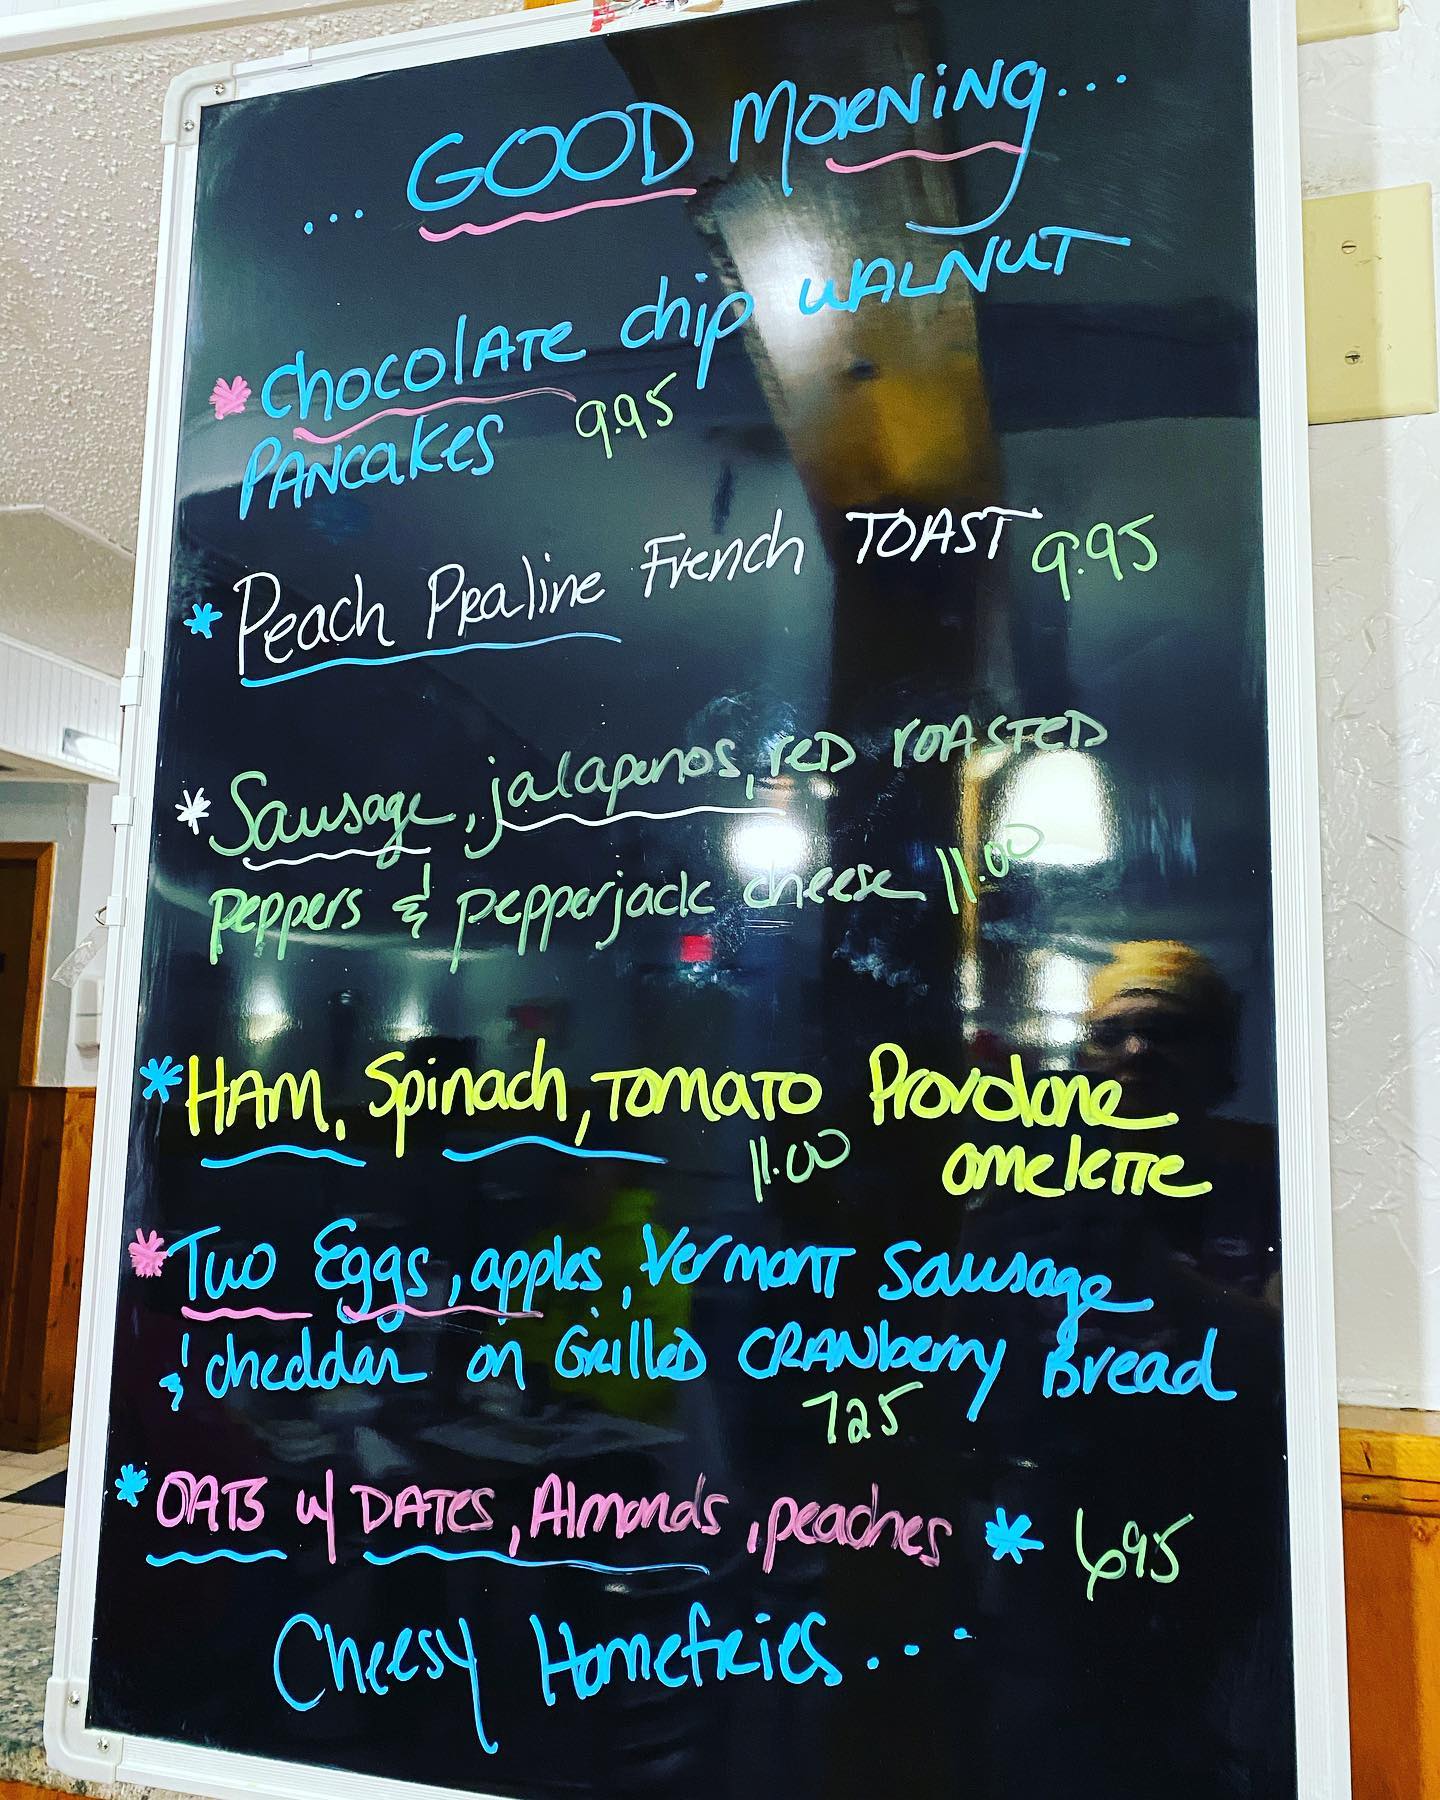 ... GOOD MORNING...
* Chocolate chip WALNUT
PANCAKES 9.95
* Peach Praline French TOAST 9.95
* Sausage, jalapenos, reD ROASTED
Peppers & pepperjack cheese 11.00
* HAM, Spinach, TOMATO Provolone
11.00 omelette
* Two Eggs, apples, Vermont Sausage
& cheddar on GrilleD CRANberry Bread
725
* OATS w/ DATES, Almonds, peaches * 695
Cheesy Homefries...